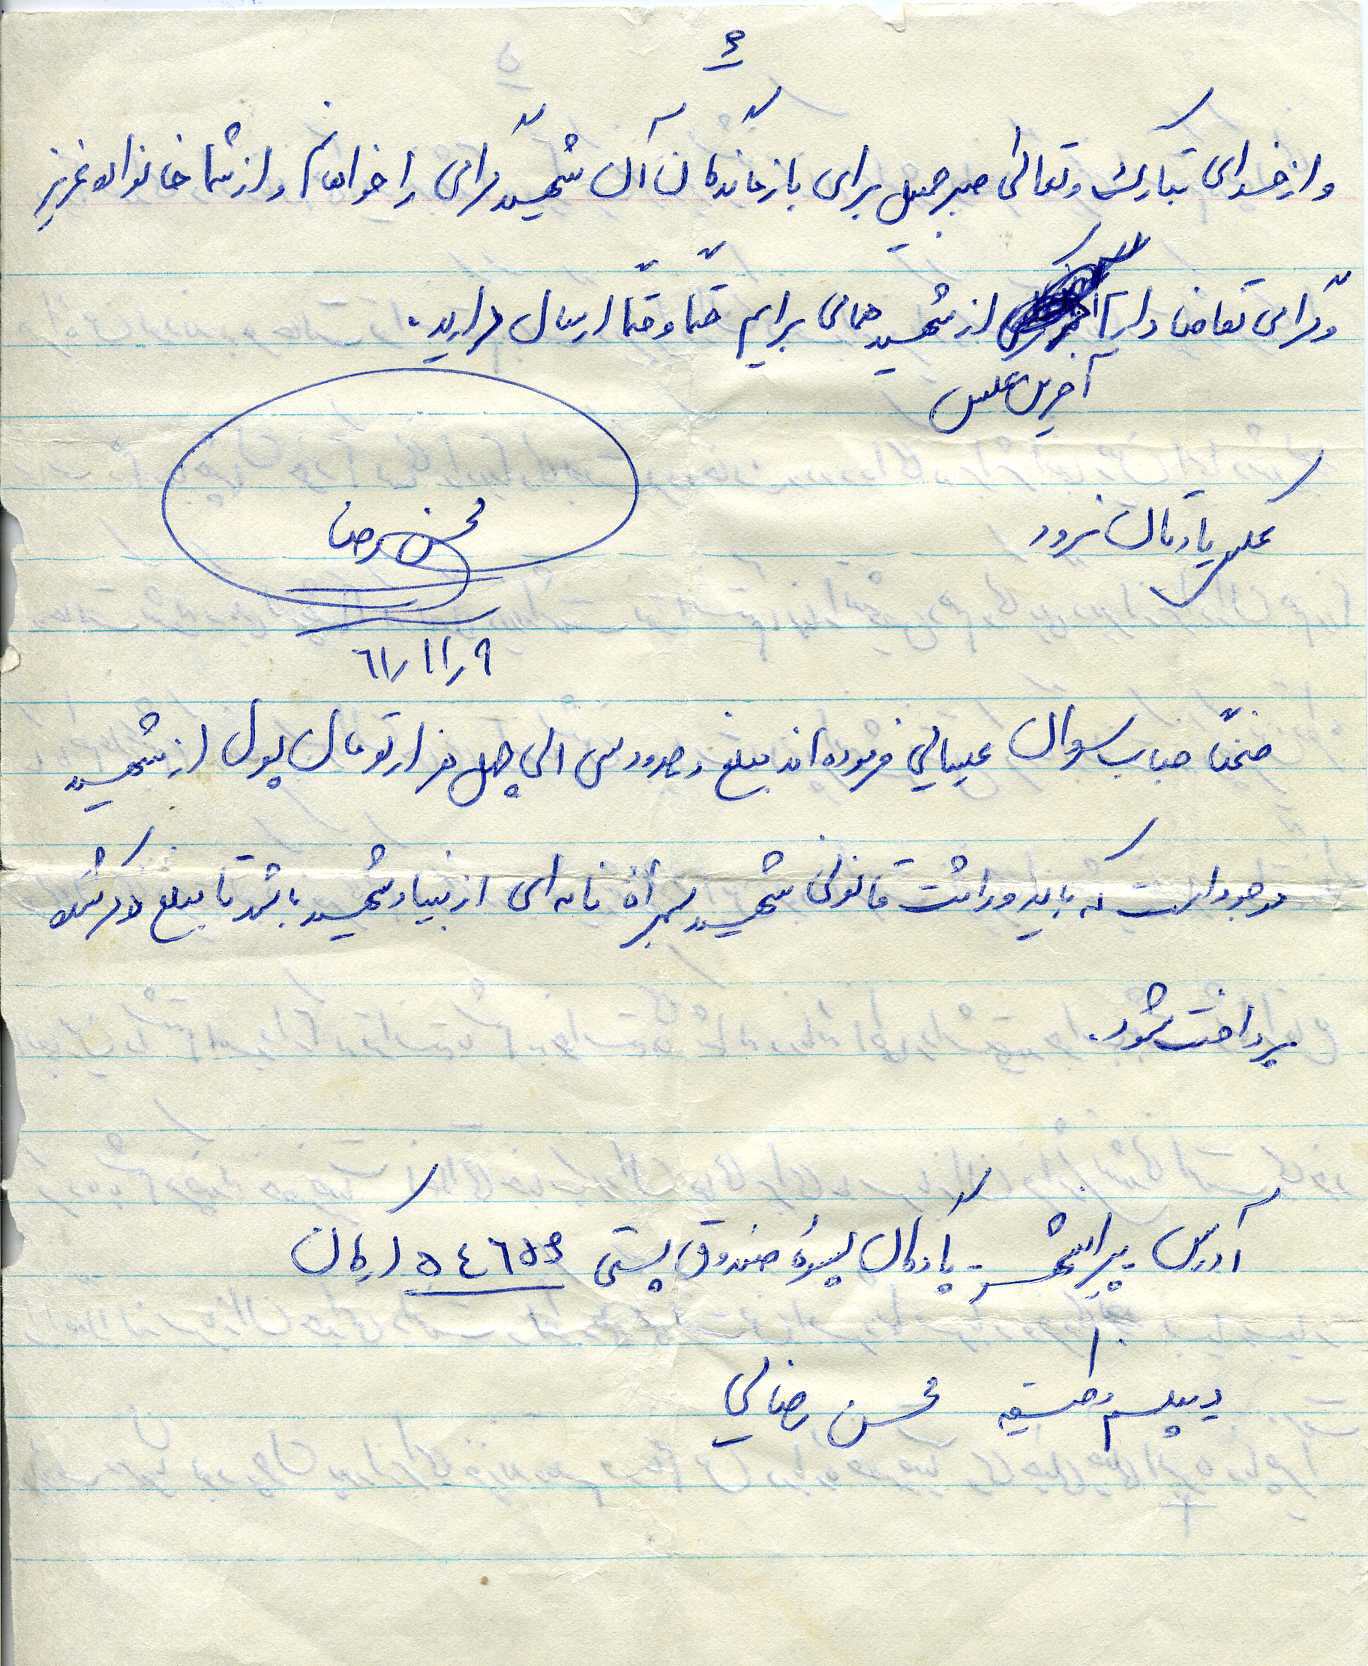 ۶
و از خدای تبارک و تعالی صبر جمیل برای بازماندگان آن شهید گرامی را خواهانم و از شما خانواده عزیز
و گرامی تقاضا دارم از شهید همائی برایم حتما و حتما ارسال دارید.
آخرین عکس
عکس یادتان نرود
محسن رضا
۶۱/۱۱/۹
ضمنا جناب سروان عیسائی فرموده اند مبلغ حدود سی الی چهل هزار تومان پول از شهید
موجود است که باید وراثت قانونی شهید بهمراه نامه ای از بنیاد شهید باشد تا مبلغ ذکر شده
پرداخت شود.
آدرس پیرانشهر - پادگان پسوه صندوق پستی ۵۴۶۵۶ ارکان
دیپلم وظیفه محسن رضائی